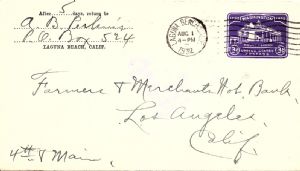 After 5 days, return to
A B Perkins
P.O. Box 524
LAGUNA BEACH, CALIF.
LAGUNA BEACH
AUG 1
4-PM
1932
WASHINGTON
Farmers & Merchants Nat. Bank,
Los Angeles,
Calif.
4th & Main